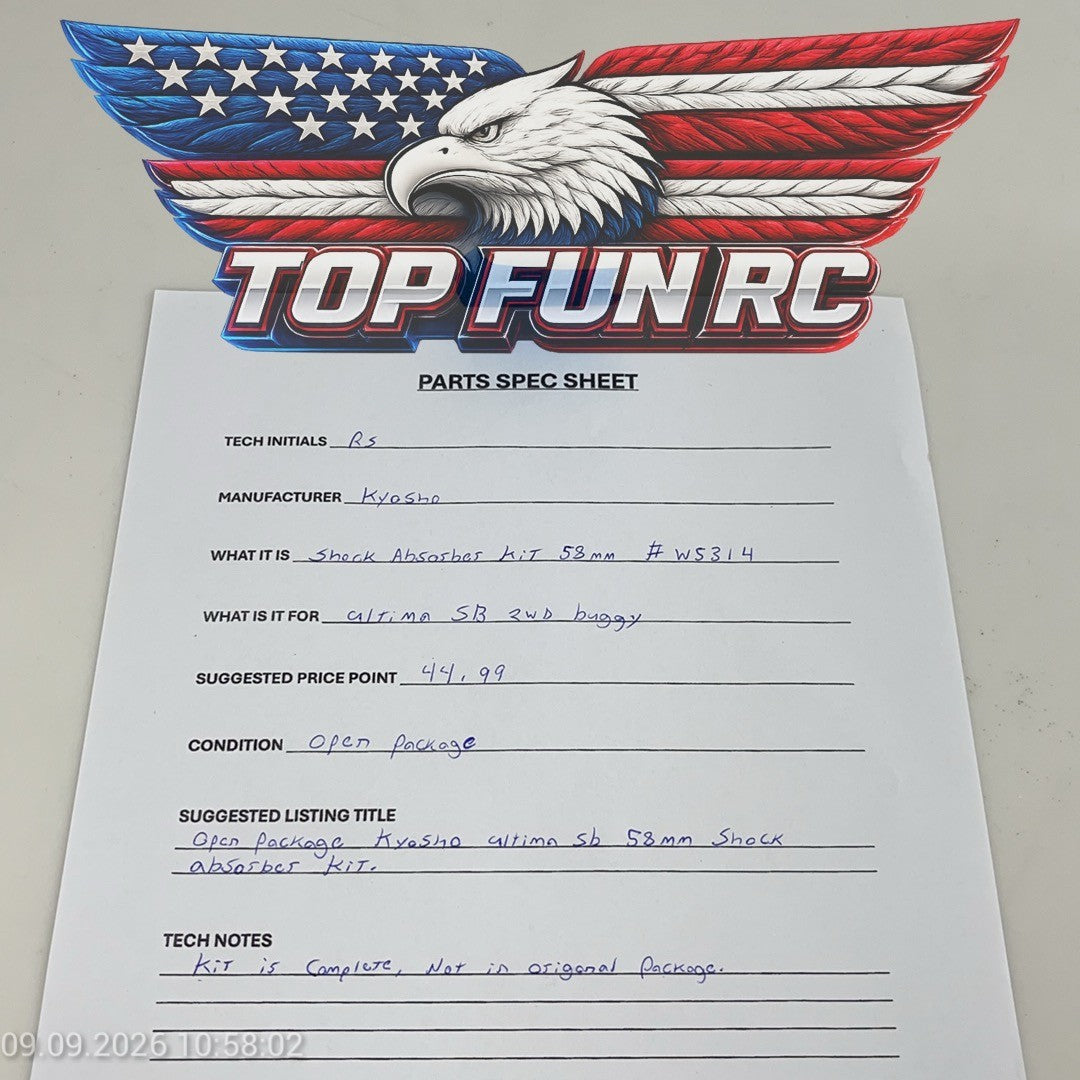 TOP FUN RC
PARTS SPEC SHEET
TECH INITIALS RS
MANUFACTURER Kyosho
WHAT IT IS Shock Absorber Kit 58mm # W5314
WHAT IS IT FOR Ultima SB 2WD buggy
SUGGESTED PRICE POINT 44.99
CONDITION Open Package
SUGGESTED LISTING TITLE
Open Package Kyosho Ultima Sb 58mm Shock
absorber Kit.
TECH NOTES
Kit is Complete, Not in origonal Package.
09.09.2026 10:58:02